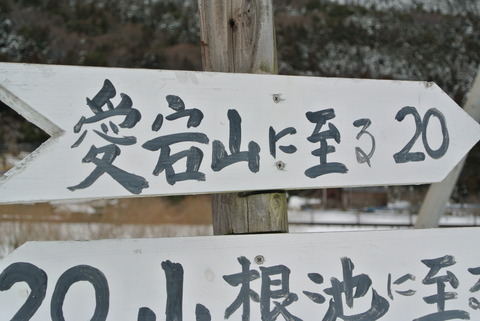 愛宕山に至る20
20小根池に至る